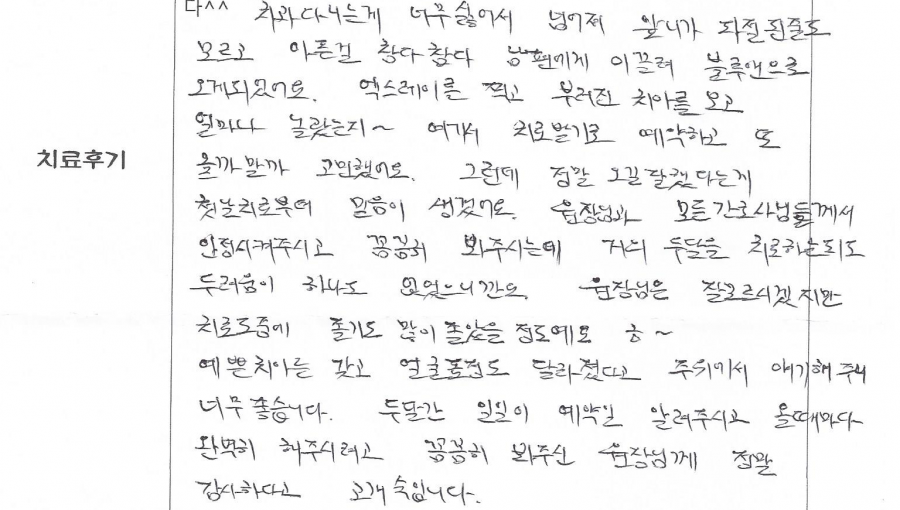 다^^ 치과다니는게 너무 싫어서 넘어져 앞니가 파절된줄도
모르고 아픈걸 참다 참다 남편에게 이끌려 블루앤으로
오게되었어요. 엑스레이를 찍고 부러진 치아를 보고
얼마나 놀랐는지~ 여기서 치료받기로 예약하고 또
올까말까 고민했어요. 그런데 정말 오길 잘했다는게
치료후기
첫날치료부터 믿음이 생겼어요. 원장님과 모든간호사님들께서
안정시켜주시고 꼼꼼히 봐주시는데 거의 두달을 치료하는데도
두려움이 하나도 없었으니깐요. 원장님은 잘모르시겠지만
치료도중에 졸기도 많이 졸았을 정도예요 ㅎ~
예쁜치아를 갖고 얼굴표정도 달라졌다고 주위에서 얘기해 주니
너무 좋습니다. 두달간 일일이 예약일 알려주시고 올때마다
완벽히 해주시려고 꼼꼼히 봐주신 원장님께 정말
감사하다고 고개 숙입니다.